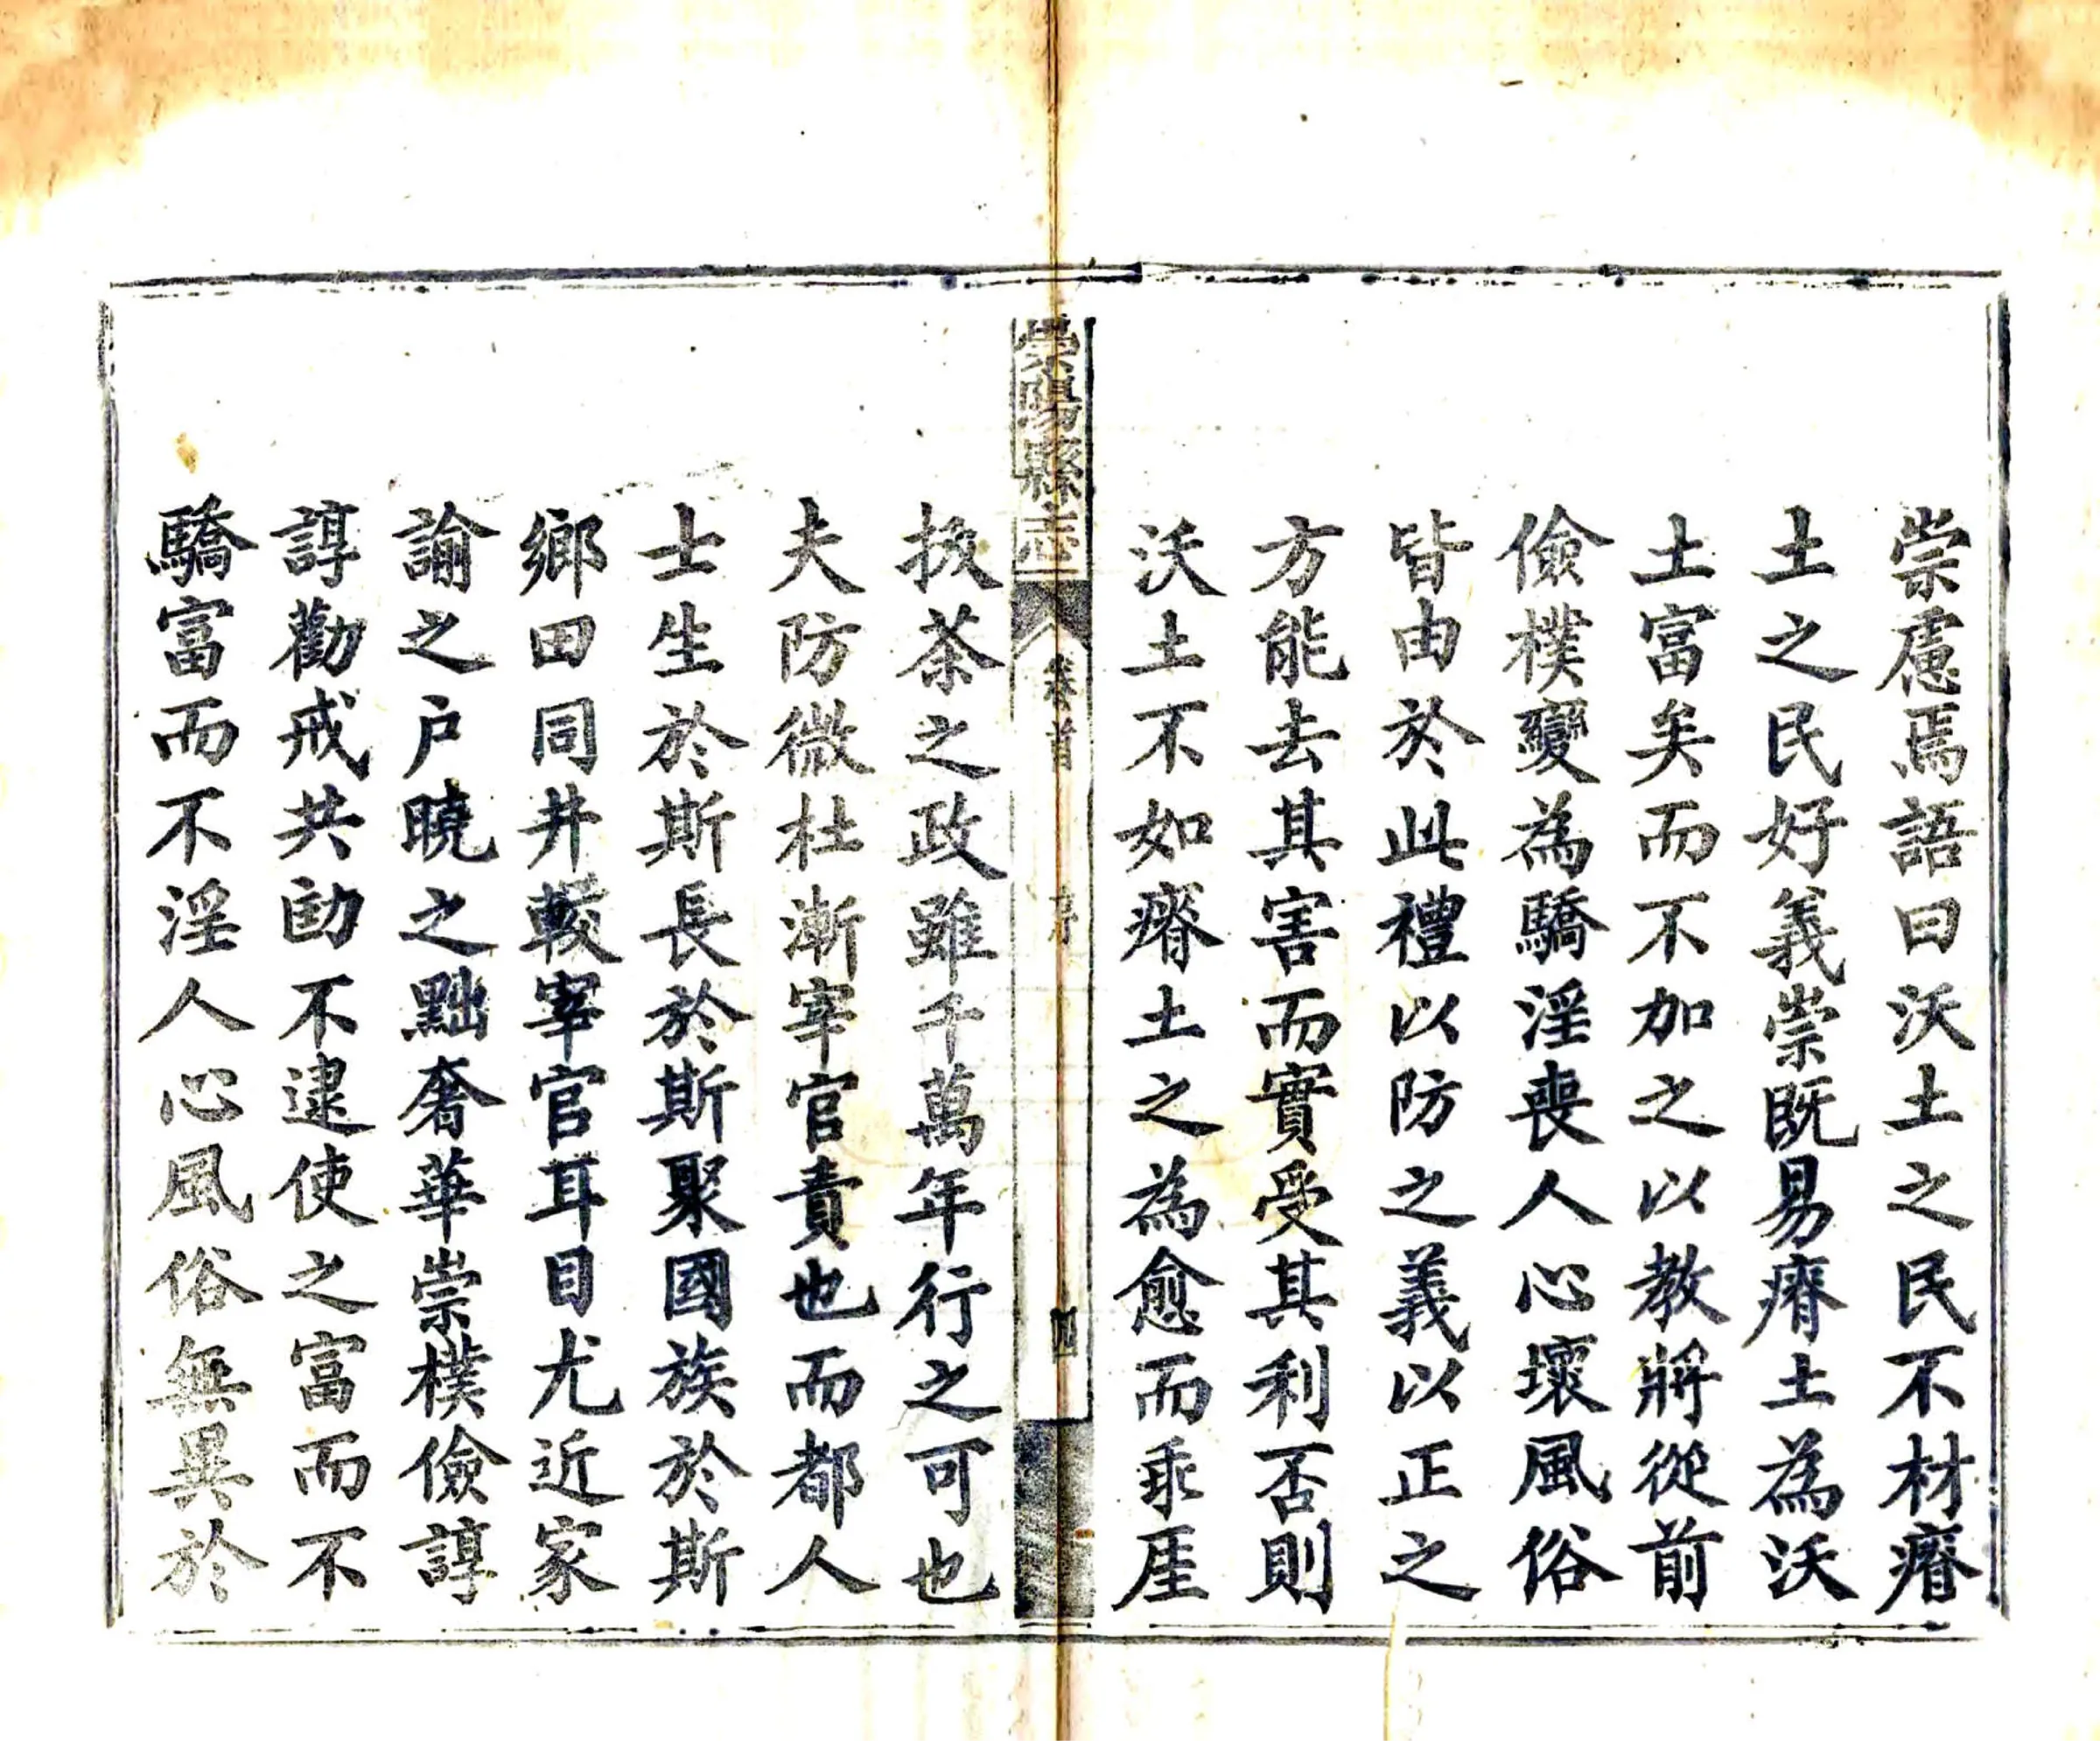 崇慮焉語曰沃土之民不材瘠
土之民好義崇既易瘠土為沃
土富矣而不加之以教將從前
儉樸變為驕淫喪人心壞風俗
皆由於此禮以防之義以正之
方能去其害而實受其利否則
沃土不如瘠土之為愈而乖厓
崇陽縣志
卷首
序
四
拔茶之政雖千萬年行之可也
夫防微杜漸宰官責也而都人
士生於斯長於斯聚國族於斯
鄉田同井較宰官耳目尤近家
諭之户曉之黜奢華崇樸儉諄
諄勸戒共勖不逮使之富而不
驕富而不淫人心風俗無異於